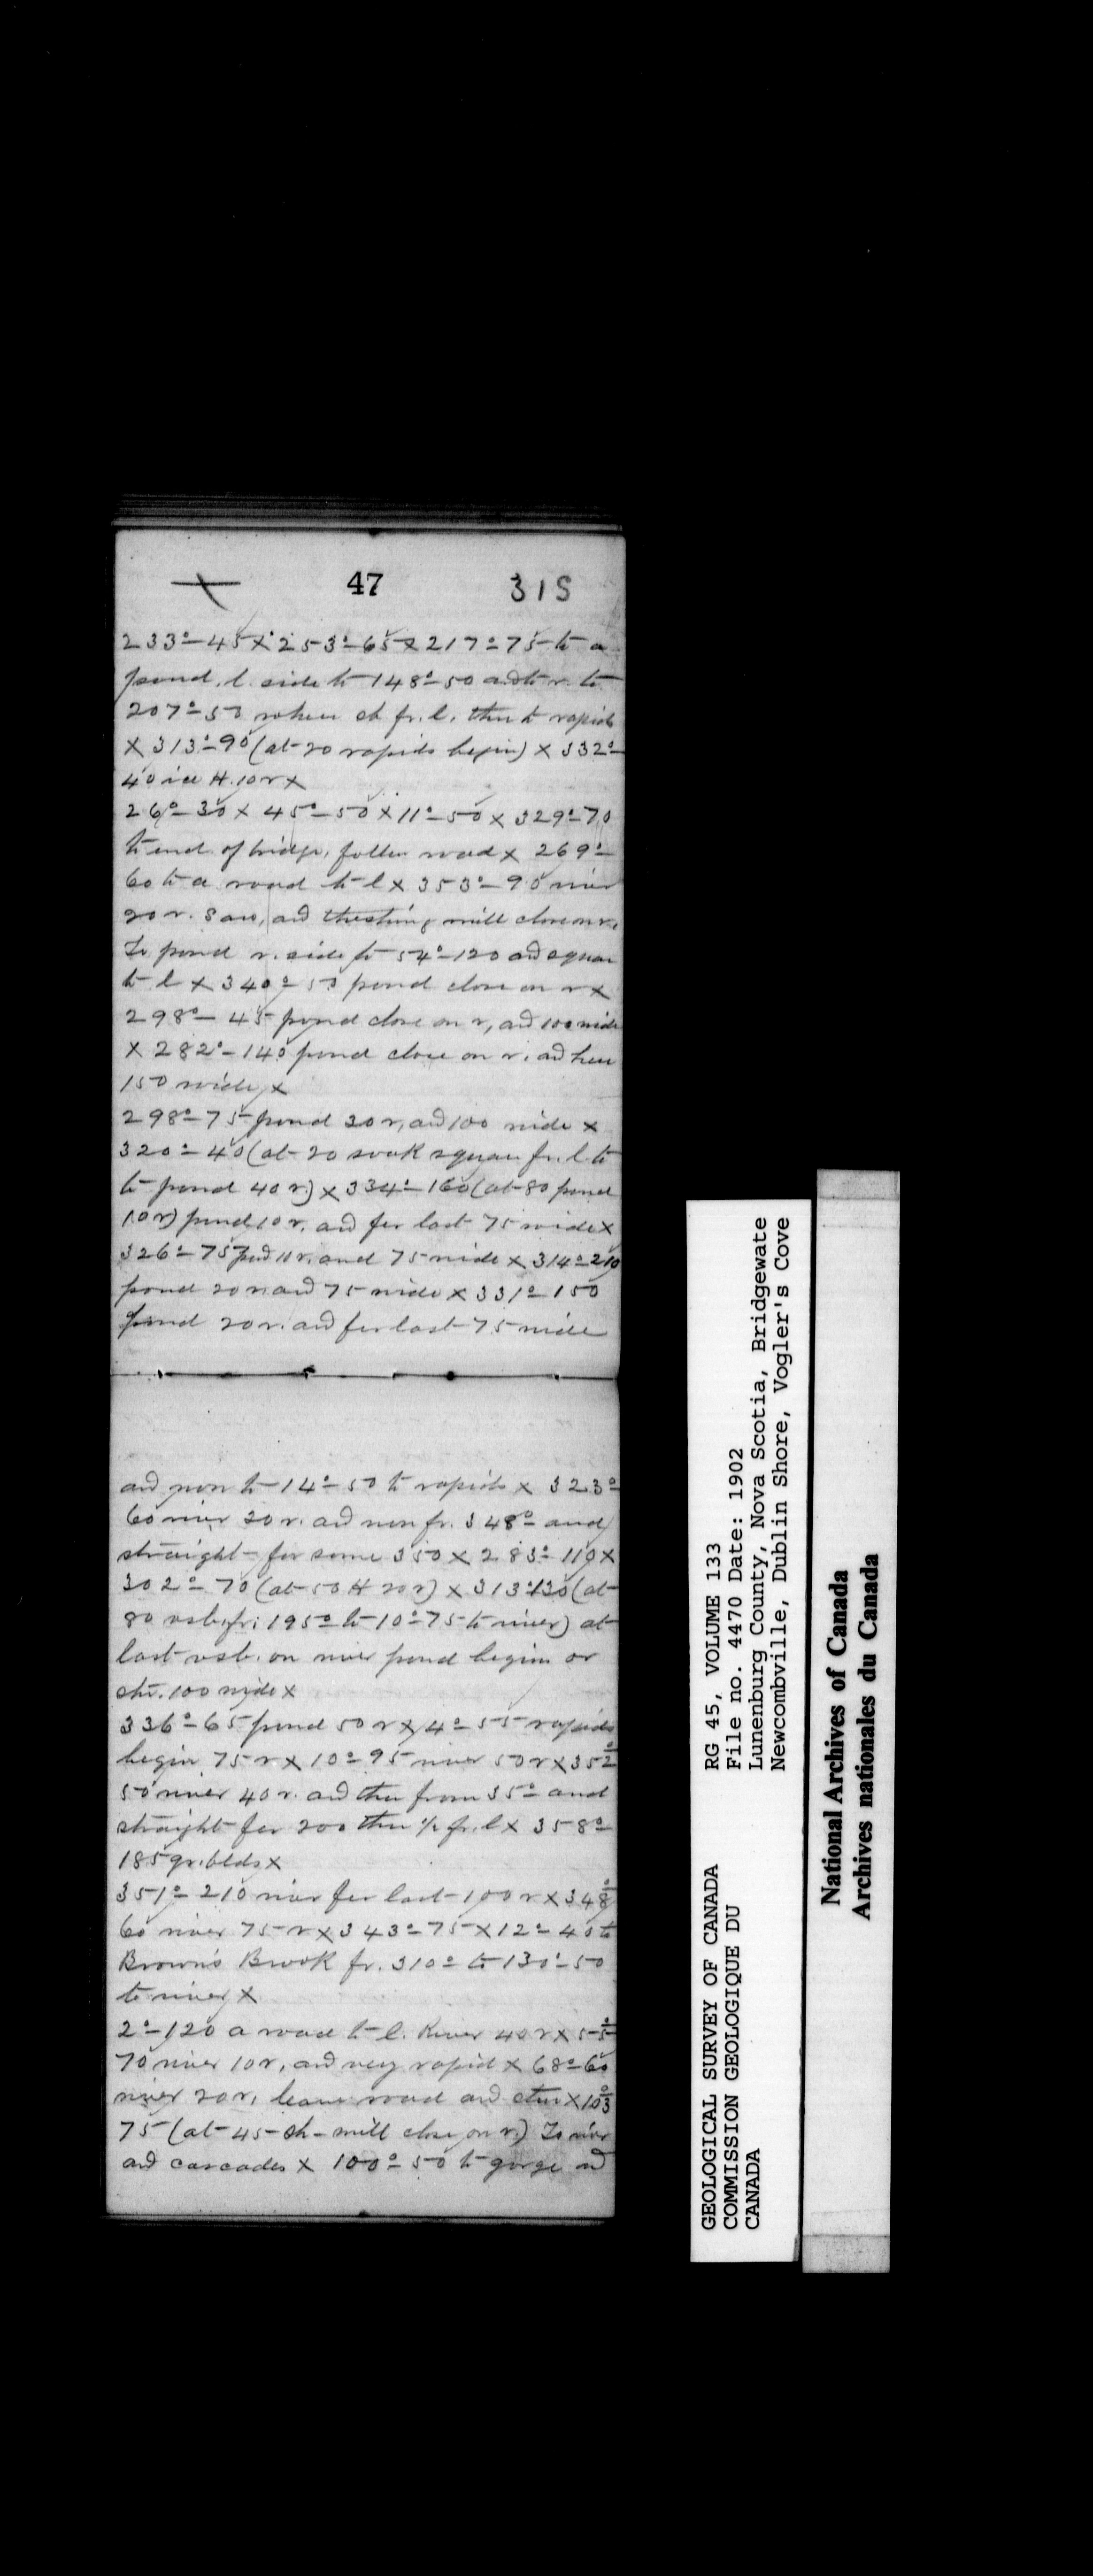 47 315
233°-45 x 253°-65 x 217°-75 to a
pond, l. side to 148°-50 and to r. to
207°-50 where ch fr. l. then to rapids
x 313°-90 (at 20 rapids begin) x 332°-
40 H. 10 r x
26°-30 x 45°-50 x 11°-50 x 329°-70
to end of bridge, follow road x 269°-
60 to a road to l x 353°-90 river
20 r. Saw, and threshing mill close on r.
To pond r. side to 54°-120 and square
to l x 340°-50 pond close on r x
298°-45 pond close on r, and 100 wide
x 282°-140 pond close on r. and here
150 wide x
298°-75 pond 30 r, and 100 wide x
320°-40 (at 20 square fr. l to
to pond 40 r.) x 334°-160 (at 80 pond
10 r) pond 10 r. and for last 75 wide x
326°-75 pond 10 r. and 75 wide x 314°-210
pond 20 r. and 75 wide x 331°-150
pond 20 r. and for last 75 wide
and now to 14°-50 to rapids x 323°-
60 river 20 r. and now fr. 348° and
straight for some 350 x 283°-110 x
302°-70 (at 50 H 20 r) x 313°-130 (at
80 fr. 195° to 10°-75 to river) at
last on river pond begin or
100 wide x
336°-65 pond 50 r x 4°-55 rapids
begin 75 r x 10°-95 river 50 r x 352°
50 river 40 r. and then from 35° and
straight for 200 then fr. l x 358°-
185 gr. blds x
351°-210 river for last 100 r x 348°
60 river 75 r x 343°-75 x 12°-40 to
Brown's Brook fr. 310° to 130°-50
to river x
2°-120 a road to l. River 40 r x 55°
70 river 10 r, and very rapid x 68°-60
river 20 r, leave road and x 103°
75 (at 45 sh-mill close on r.) To river
and cascades x 100°-50 to gorge and
GEOLOGICAL SURVEY OF CANADA
COMMISSION GEOLOGIQUE DU
CANADA
RG 45, VOLUME 133
File no. 4470 Date: 1902
Lunenburg County, Nova Scotia, Bridgewate
Newcombville, Dublin Shore, Vogler's Cove
National Archives of Canada
Archives nationales du Canada